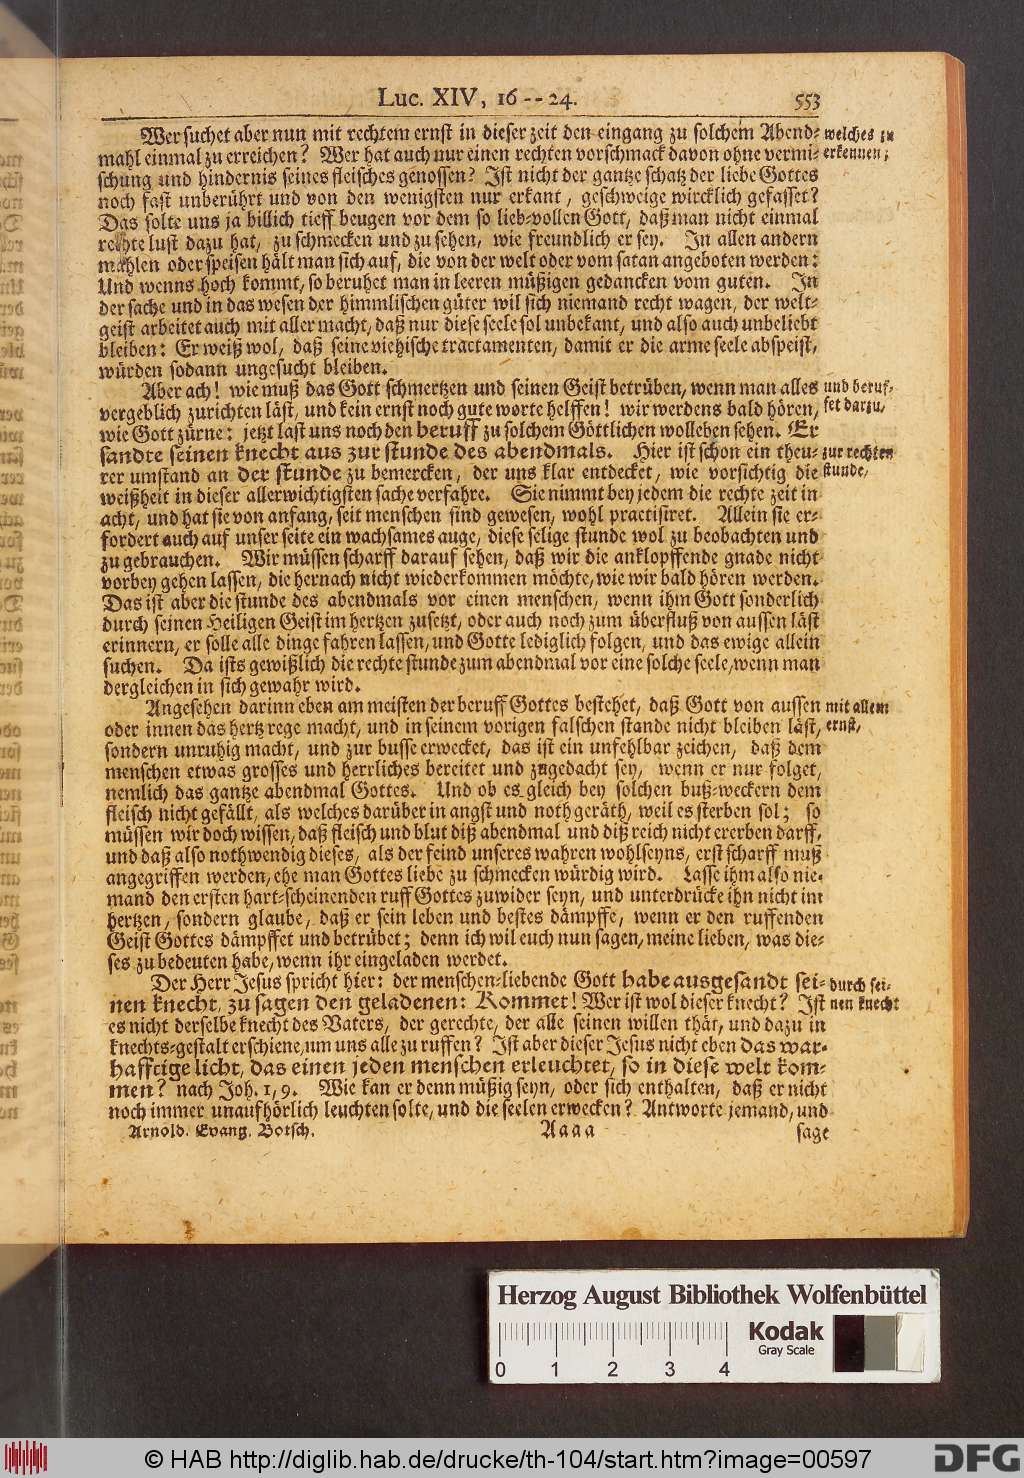 Luc. XIV, 16 -- 24. 553
Wer suchet aber nun mit rechtem ernst in dieser zeit den eingang zu solchem Abend- welches zu
mahl einmal zu erreichen? Wer hat auch nur einen rechten vorschmack davon ohne vermi- erkennen;
schung und hindernis seines fleisches genossen? Ist nicht der gantze schatz der liebe Gottes
noch fast unberührt und von den wenigsten nur erkant, geschweige wircklich gefasset?
Das solte uns ja billich tieff beugen vor dem so lieb-vollen Gott, daß man nicht einmal
rechte lust dazu hat, zu schmecken und zu sehen, wie freundlich er sey. In allen andern
mahlen oder speisen hält man sich auf, die von der welt oder vom satan angeboten werden:
Und wenns hoch kommt, so beruhet man in leeren müßigen gedancken vom guten. In
der sache und in das wesen der himmlischen güter wil sich niemand recht wagen, der welt-
geist arbeitet auch mit aller macht, daß nur diese seele sol unbekant, und also auch unbeliebt
bleiben: Er weiß wol, daß seine viehische tractamenten, damit er die arme seele abspeist,
würden sodann ungesucht bleiben.
Aber ach! wie muß das Gott schmertzen und seinen Geist betrüben, wenn man alles und beruf-
vergeblich zurichten läst, und kein ernst noch gute worte helffen! wir werdens bald hören, fet darzu,
wie Gott zürne: jetzt last uns noch den beruff zu solchem Göttlichen wolleben sehen. Er
sandte seinen knecht aus zur stunde des abendmals. Hier ist schon ein theu- zur rechten
rer umstand an der stunde zu bemercken, der uns klar entdecket, wie vorsichtig die stunde,
weißheit in dieser allerwichtigsten sache verfahre. Sie nimmt bey jedem die rechte zeit in
acht, und hat sie von anfang, seit menschen sind gewesen, wohl practisiret. Allein sie er-
fordert auch auf unser seite ein wachsames auge, diese selige stunde wol zu beobachten und
zu gebrauchen. Wir müssen scharff darauf sehen, daß wir die anklopffende gnade nicht
vorbey gehen lassen, die hernach nicht wiederkommen möchte, wie wir bald hören werden.
Das ist aber die stunde des abendmals vor einen menschen, wenn ihm Gott sonderlich
durch seinen Heiligen Geist im hertzen zusetzt, oder auch noch zum überfluß von aussen läst
erinnern, er solle alle dinge fahren lassen, und Gotte lediglich folgen, und das ewige allein
suchen. Da ists gewißlich die rechte stunde zum abendmal vor eine solche seele, wenn man
dergleichen in sich gewahr wird.
Angesehen darinn eben am meisten der beruff Gottes bestehet, daß Gott von aussen mit allem
oder innen das hertz rege macht, und in seinem vorigen falschen stande nicht bleiben läst, ernst,
sondern unruhig macht, und zur busse erwecket, das ist ein unfehlbar zeichen, daß dem
menschen etwas grosses und herrliches bereitet und zugedacht sey, wenn er nur folget,
nemlich das gantze abendmal Gottes. Und ob es gleich bey solchen buß-weckern dem
fleisch nicht gefällt, als welches darüber in angst und noth geräth, weil es sterben sol; so
müssen wir doch wissen, daß fleisch und blut diß abendmal und diß reich nicht ererben darff,
und daß also nothwendig dieses, als der feind unseres wahren wohlseyns, erst scharff muß
angegriffen werden, ehe man Gottes liebe zu schmecken würdig wird. Lasse ihm also nie-
mand den ersten hart-scheinenden ruff Gottes zuwider seyn, und unterdrücke ihn nicht im
hertzen, sondern glaube, daß er sein leben und bestes dämpffe, wenn er den ruffenden
Geist Gottes dämpffet und betrübet; denn ich wil euch nun sagen, meine lieben, was die-
ses zu bedeuten habe, wenn ihr eingeladen werdet.
Der Herr Jesus spricht hier: der menschen-liebende Gott habe ausgesandt sei- durch sei-
nen knecht, zu sagen den geladenen: Kommet! Wer ist wol dieser knecht? Ist nen knecht
es nicht derselbe knecht des Vaters, der gerechte, der alle seinen willen thät, und dazu in
knechts-gestalt erschiene, um uns alle zu ruffen? Ist aber dieser Jesus nicht eben das war-
hafftige licht, das einen jeden menschen erleuchtet, so in diese welt kom-
men? nach Joh. 1, 9. Wie kan er denn müßig seyn, oder sich enthalten, daß er nicht
noch immer unaufhörlich leuchten solte, und die seelen erwecken? Antworte jemand, und
Arnold. Evang. Botsch. Aaaa sage
Herzog August Bibliothek Wolfenbüttel
Kodak
Gray Scale
0 1 2 3 4
© HAB http://diglib.hab.de/drucke/th-104/start.htm?image=00597
DFG